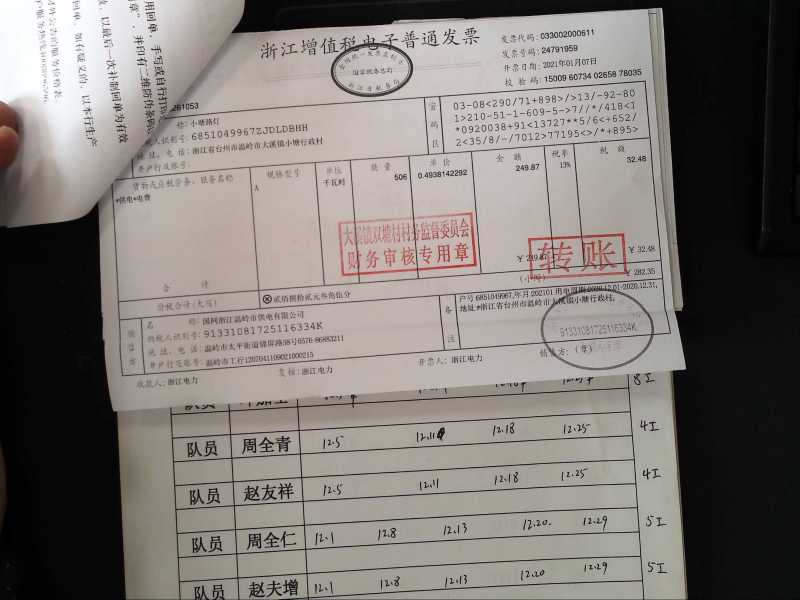 用回单，手写或自行打印
章"，并印有二维防伪条码
，以最后一次补制回单为有效
回单，如有疑义的，以本行生产
对外公告的服务价格表
浙江增值税电子普通发票
国家税务总局
浙江省税务局
发票代码：033002000611
发票号码：24791959
开票日期：2021年01月07日
校 验 码：15009 60734 02658 78035
261053
称：小塘路灯
人识别号：6851049967ZJDLDBHH
地址、电话：浙江省台州市温岭市大溪镇小塘行政村
开户行及账号：
密码区
03-08<290/71+898>/>13/-92-80
1>210-51-1-609-5->7//*/418<1
*0920038+91<13727**5/6<+652/
2<35/8/-/7012>77195<>/*+895>
货物或应税劳务、服务名称 规格型号 单位 数量 单价 金额 税率 税额
*供电*电费 A 千瓦时 506 0.4938142292 249.87 13% 32.48
大溪镇双塘村村务监督委员会
财务审核专用章
转账
合计 ￥249.87 ￥32.48
价税合计（大写） 贰佰捌拾贰元叁角伍分 （小写） ￥282.35
销售方
名称：国网浙江温岭市供电有限公司
纳税人识别号：91331081725116334K
地址、电话：温岭市太平街道锦屏路58号0576-86883211
开户行及账号：温岭市工行1207041109021000215
备注
户号6851049967,年月 202101 用电周期 2020.12.01-2020.12.31,
地址:浙江省台州市温岭市大溪镇小塘行政村,
91331081725116334K
收款人：浙江电力 复核：浙江电力 开票人：浙江电力 销售方：（章）
队员 8工
队员 周全青 12.5 12.11 12.18 12.25 4工
队员 赵友祥 12.5 12.11 12.18 12.25 4工
队员 周全仁 12.1 12.8 12.13 12.20. 12.29 5工
队员 赵夫增 12.1 12.8 12.13 12.20 12.29 5工